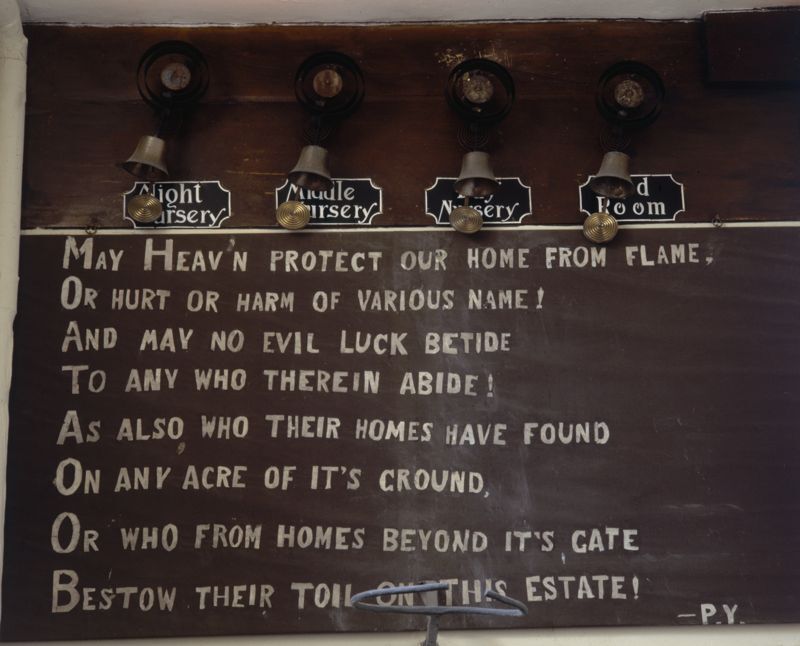 Night
Nursery
Middle
Nursery
Nursery
Room
MAY HEAV'N PROTECT OUR HOME FROM FLAME,
OR HURT OR HARM OF VARIOUS NAME!
AND MAY NO EVIL LUCK BETIDE
TO ANY WHO THEREIN ABIDE!
AS ALSO WHO THEIR HOMES HAVE FOUND
ON ANY ACRE OF IT'S GROUND,
OR WHO FROM HOMES BEYOND IT'S GATE
BESTOW THEIR TOIL ON THIS ESTATE!
—P.Y.